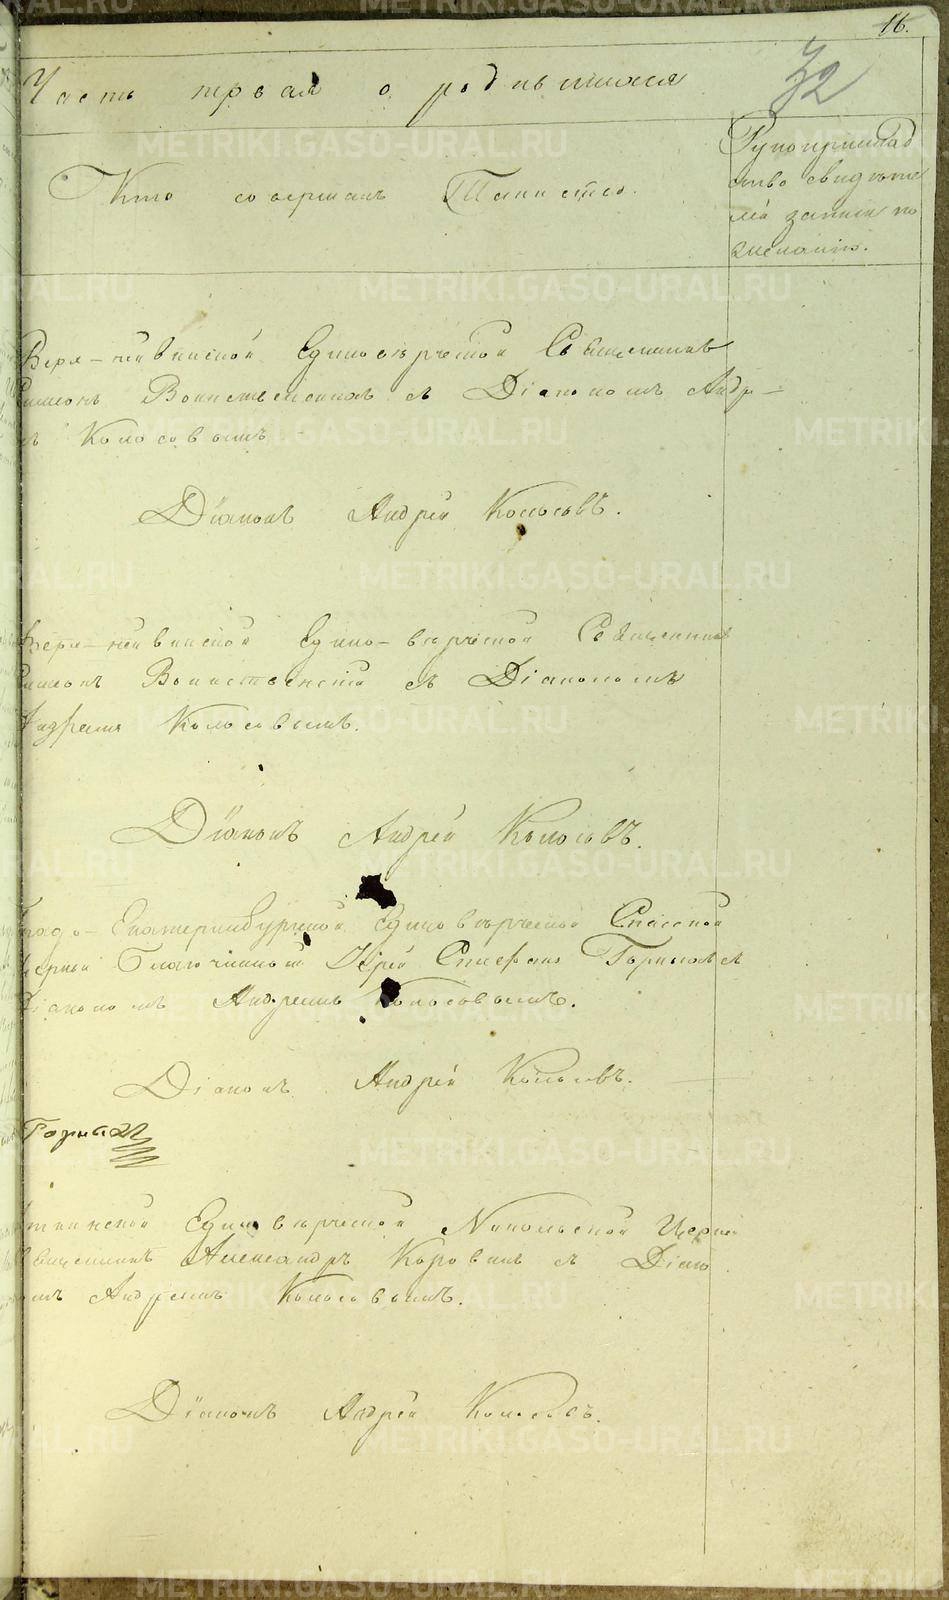 16.
32
Часть первая о родившихся
Кто совершалъ Таинство.
Рукоприклад
ство свидѣте
лей записи по
желанію.
Верх-нейвинской Единовѣрческой Священникъ
Воинственскій съ Діакономъ Андр-
Колосовымъ
Діаконъ Андрей Колосовъ.
Верх-нейвинской Едино-вѣрческой Священникъ
Воинственскій съ Діакономъ
Андреемъ Колосовымъ.
Діаконъ Андрей Колосовъ.
Градо-Екатеринбургской Единовѣрческой Спасской
Благочинный Іерей Стефанъ съ
Діакономъ Андреемъ Колосовымъ.
Діаконъ Андрей Колосовъ.
Единовѣрческой Никольской Церк
Священникъ Александръ Коровинъ съ Діако
мъ Андреемъ Колосовымъ.
Діаконъ Андрей Колосовъ.
METRIKI.GASO-URAL.RU